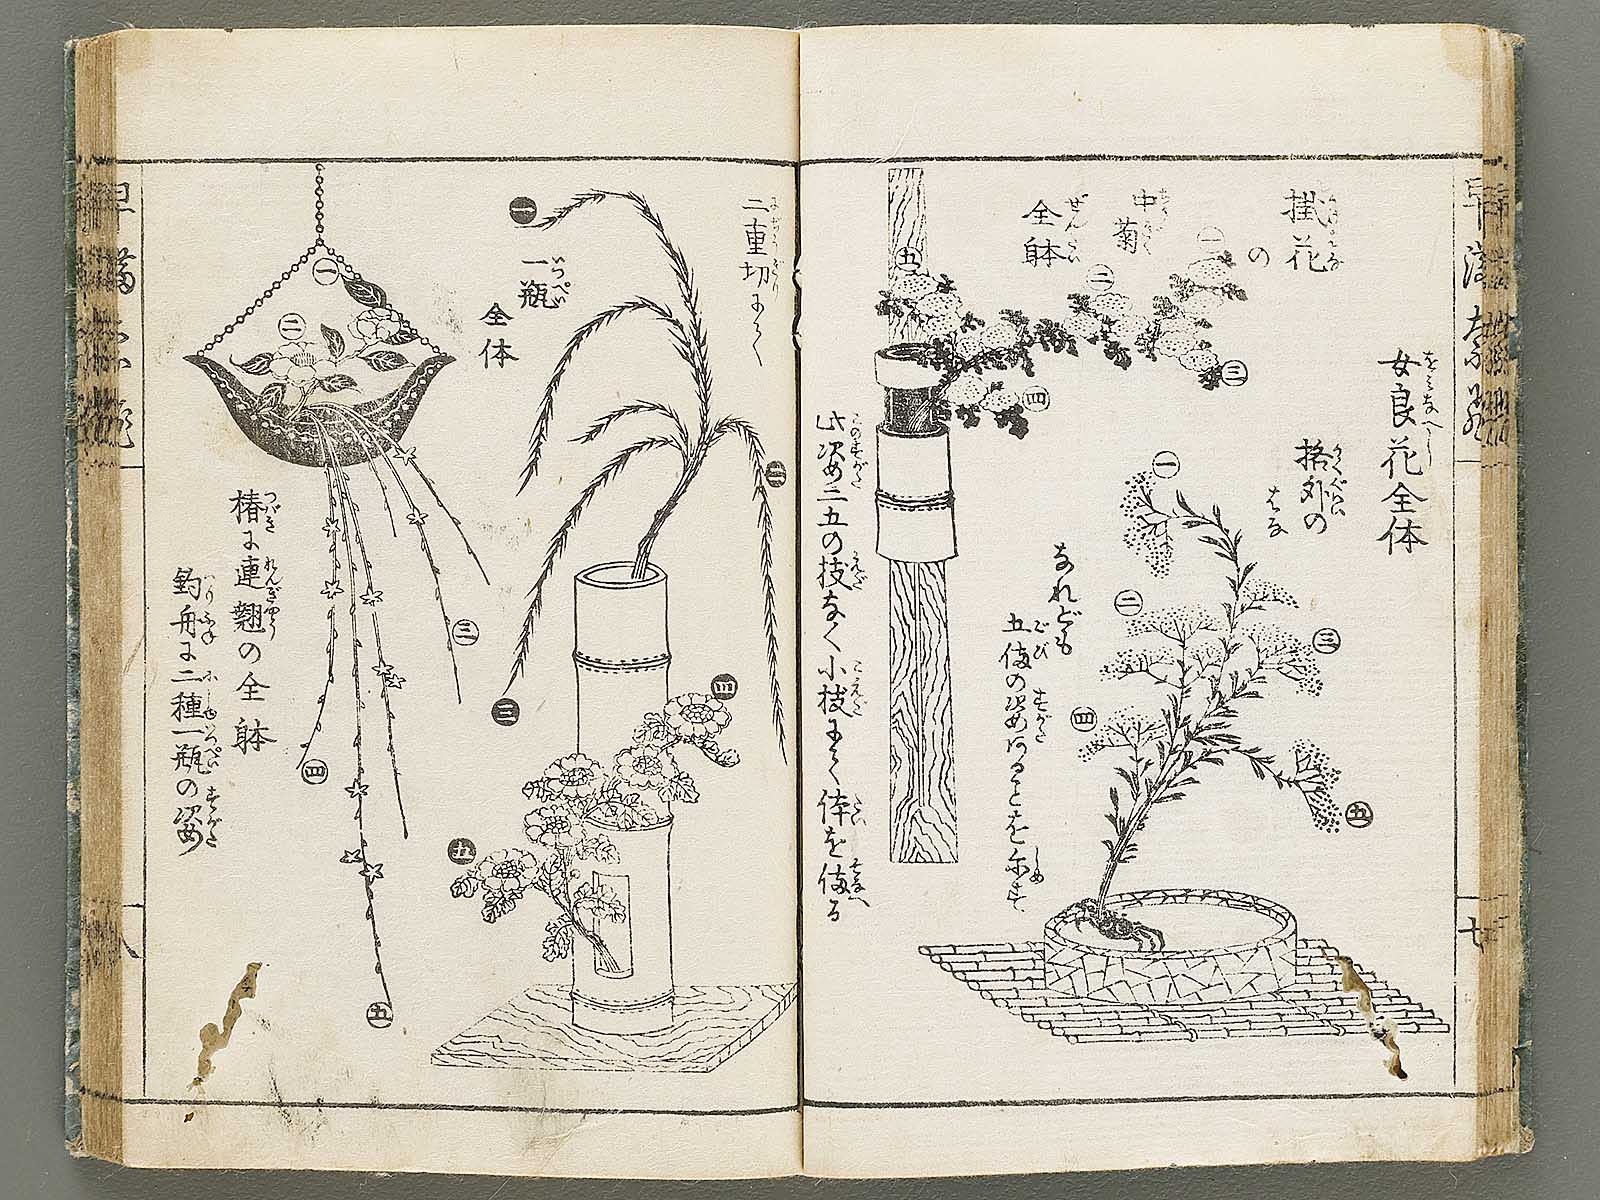 掛花
の
中菊
全躰
女良花全体
格外の
はな
なれども
五備の姿あることを示す
此姿二五の枝なく小枝にて体を備る
二重切にて
一瓶
全体
椿に連翹の全躰
釣舟に二種一瓶の姿
一
二
三
四
五
一
二
三
四
五
一
二
三
四
五
一
二
三
四
五
七
八